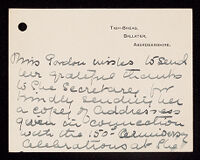 TIGH-BHEAG,
BALLATER,
ABERDEENSHIRE.
Miss Gordon wishes to send
her grateful thanks
to the Secretary for
kindly sending her
a copy of addresses
given in connection
with the 150th Anniversary
Celebrations at the